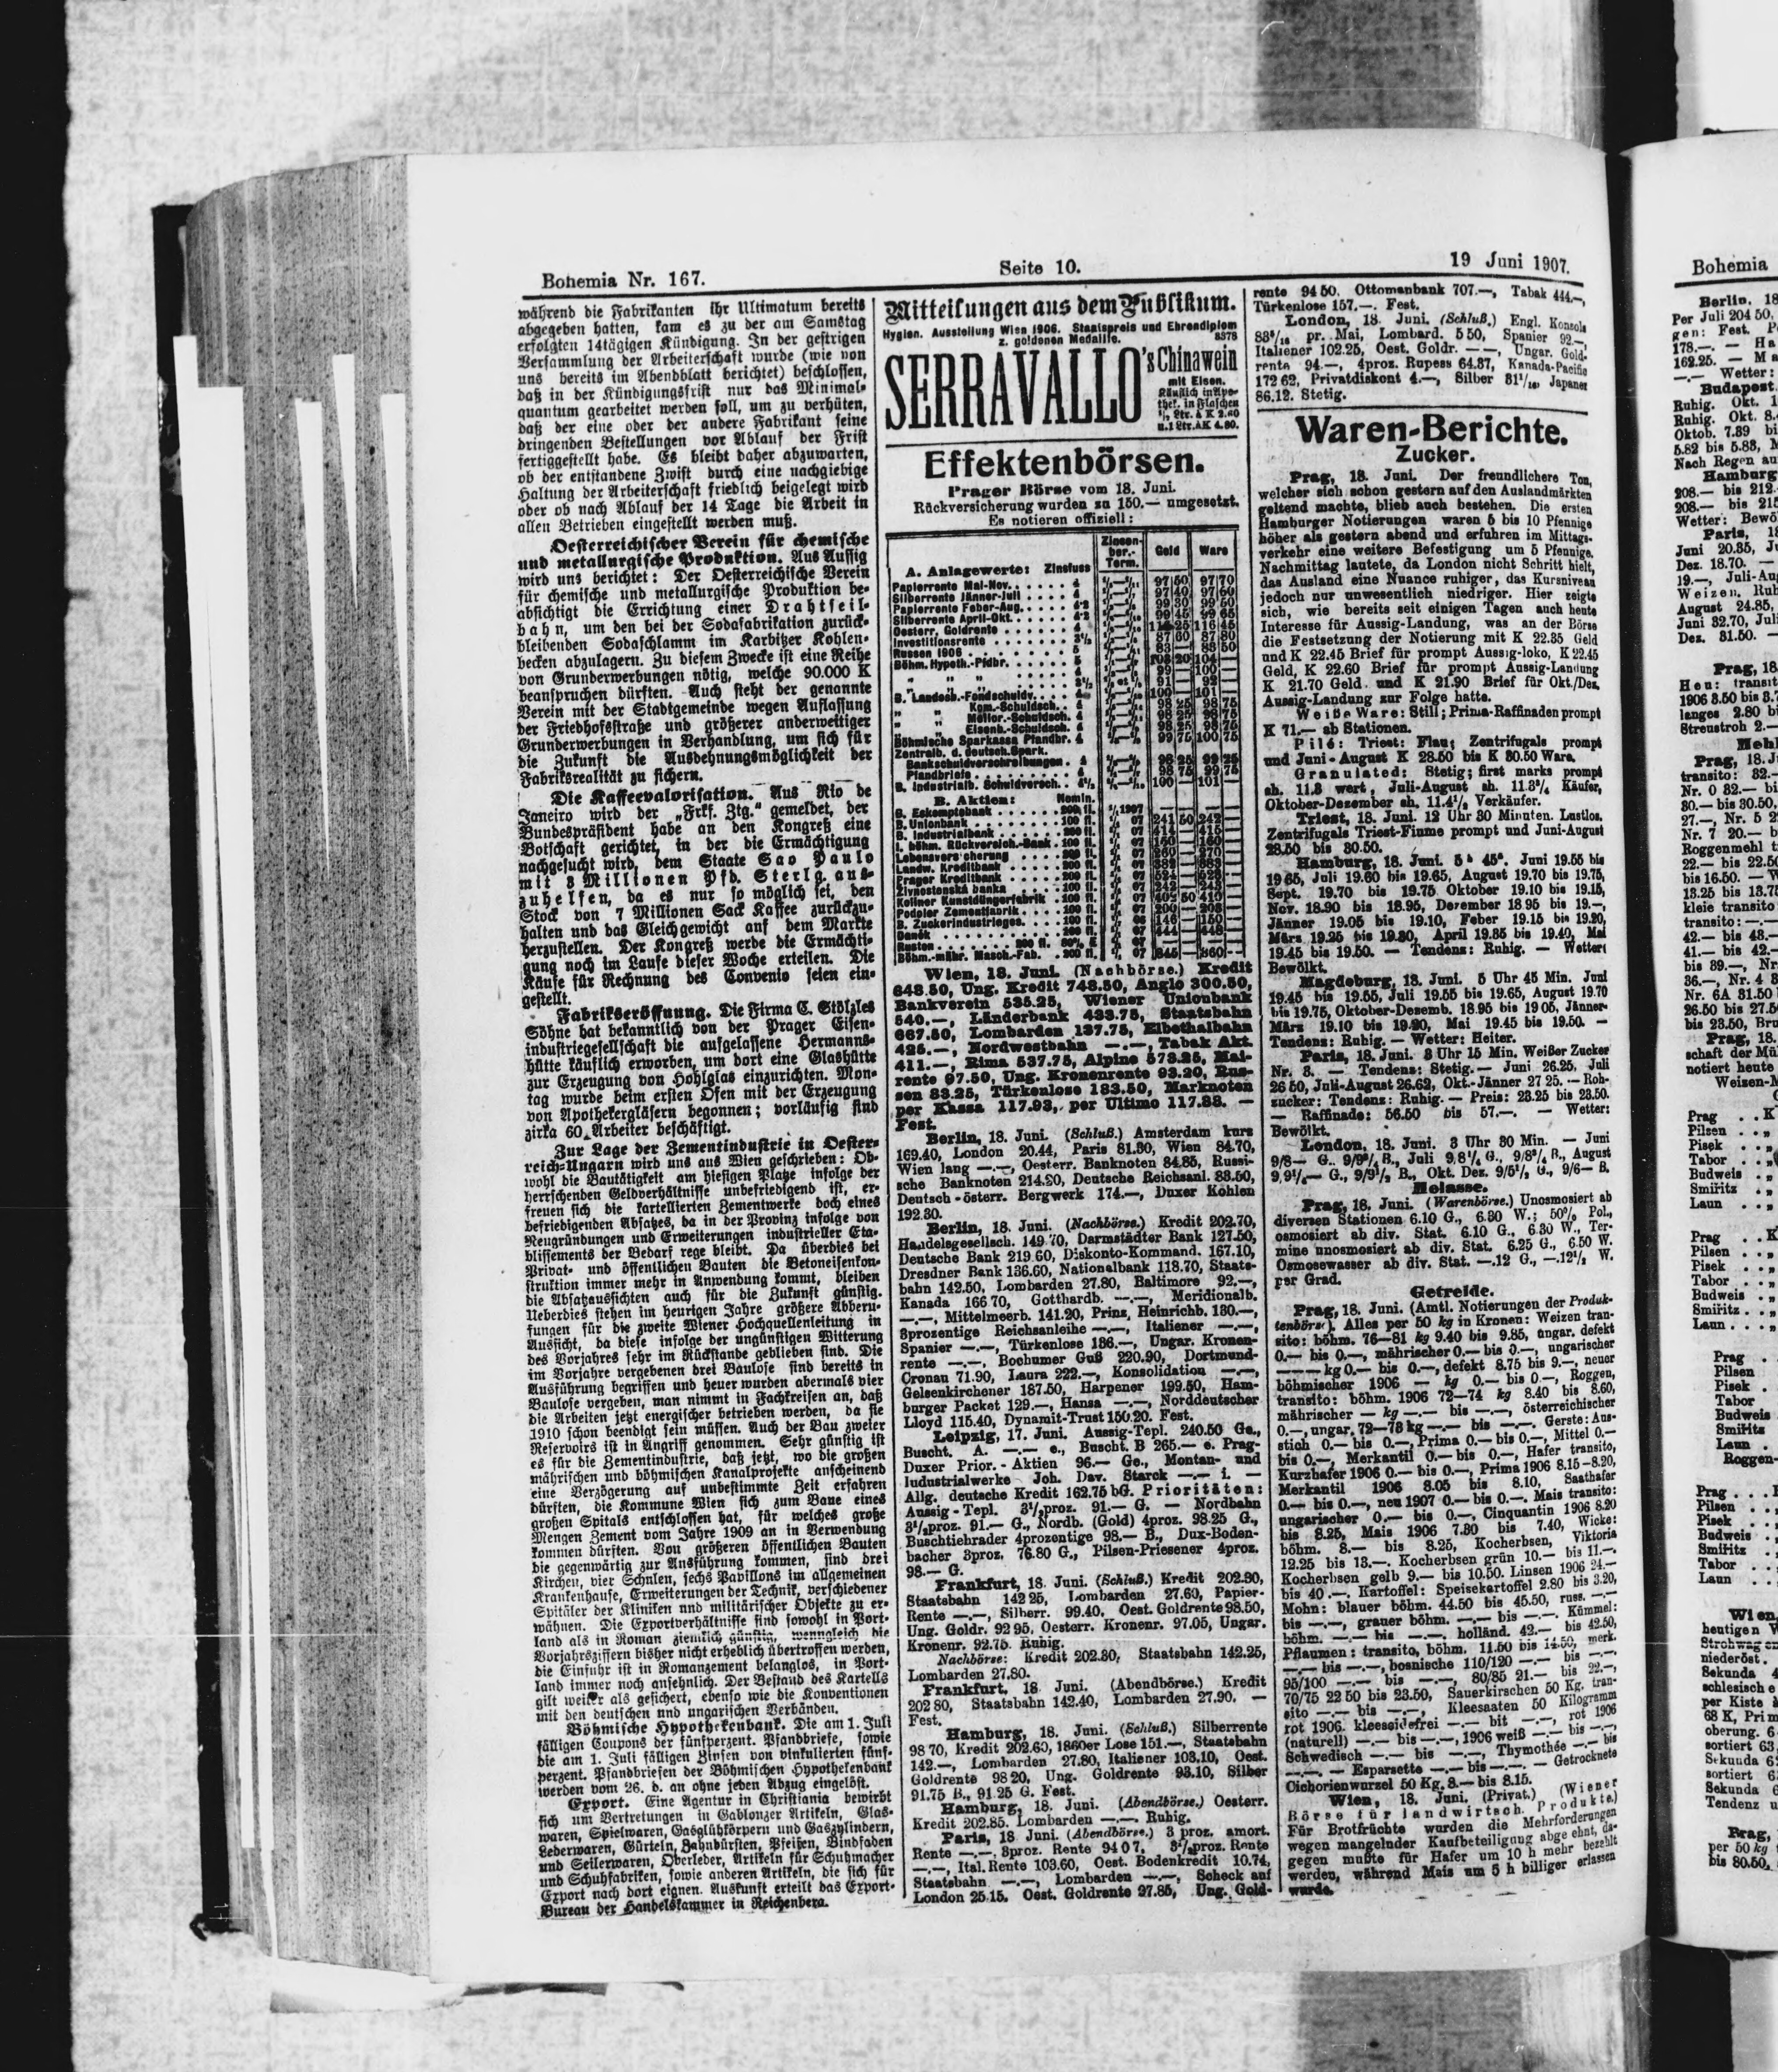 Bohemia Nr. 167.
Seite 10.
19 Juni 1907.
während die Fabrikanten ihr Ultimatum bereits
abgegeben hatten, kam es zu der am Samstag
erfolgten 14tägigen Kündigung. In der gestrigen
Versammlung der Arbeiterschaft wurde (wie von
uns bereits im Abendblatt berichtet) beschlossen,
daß in der Kündigungsfrist nur das Minimal-
quantum gearbeitet werden soll, um zu verhüten,
daß der eine oder der andere Fabrikant seine
dringenden Bestellungen vor Ablauf der Frist
fertiggestellt habe. Es bleibt daher abzuwarten,
ob der entstandene Zwist durch eine nachgiebige
Haltung der Arbeiterschaft friedlich beigelegt wird
oder ob nach Ablauf der 14 Tage die Arbeit in
allen Betrieben eingestellt werden muß.
Oesterreichischer Verein für chemische
und metallurgische Produktion. Aus Aussig
wird uns berichtet: Der Oesterreichische Verein
für chemische und metallurgische Produktion be-
absichtigt die Errichtung einer Drahtseil-
bahn, um den bei der Sodafabrikation zurück-
bleibenden Sodaschlamm im Karbitzer Kohlen-
becken abzulagern. Zu diesem Zwecke ist eine Reihe
von Grunderwerbungen nötig, welche 90.000 K
beanspruchen dürften. Auch steht der genannte
Verein mit der Stadtgemeinde wegen Auflassung
der Friedhofsstraße und größerer anderweitiger
Grunderwerbungen in Verhandlung, um sich für
die Zukunft die Ausdehnungsmöglichkeit der
Fabriksrealität zu sichern.
Die Kaffeevalorisation. Aus Rio de
Janeiro wird der „Frkf. Ztg.“ gemeldet, der
Bundespräsident habe an den Kongreß eine
Botschaft gerichtet, in der die Ermächtigung
nachgesucht wird, dem Staate Sao Paulo
mit 3 Millionen Pfd. Sterlg. aus-
zuhelfen, da es nur so möglich sei, den
Stock von 7 Millionen Sack Kaffee zurückzu-
halten und das Gleichgewicht auf dem Markte
herzustellen. Der Kongreß werde die Ermächti-
gung noch im Laufe dieser Woche erteilen. Die
Käufe für Rechnung des Convenio seien ein-
gestellt.
Fabrikseröffnung. Die Firma C. Stölzles
Söhne hat bekanntlich von der Prager Eisen-
industriegesellschaft die aufgelassene Hermanns-
hütte käuflich erworben, um dort eine Glashütte
zur Erzeugung von Hohlglas einzurichten. Mon-
tag wurde beim ersten Ofen mit der Erzeugung
von Apothekergläsern begonnen; vorläufig sind
zirka 60 Arbeiter beschäftigt.
Zur Lage der Zementindustrie in Oester-
reich-Ungarn wird uns aus Wien geschrieben: Ob-
wohl die Bautätigkeit am hiesigen Platze infolge der
herrschenden Geldverhältnisse unbefriedigend ist, er-
freuen sich die kartellierten Zementwerke doch eines
befriedigenden Absatzes, da in der Provinz infolge von
Neugründungen und Erweiterungen industrieller Eta-
blissements der Bedarf rege bleibt. Da überdies bei
Privat- und öffentlichen Bauten die Betoneisenkon-
struktion immer mehr in Anwendung kommt, bleiben
die Absatzaussichten auch für die Zukunft günstig.
Ueberdies stehen im heurigen Jahre größere Abberu-
fungen für die zweite Wiener Hochquellenleitung in
Aussicht, da diese infolge der ungünstigen Witterung
des Vorjahres sehr im Rückstande geblieben sind. Die
im Vorjahre vergebenen drei Baulose sind bereits in
Ausführung begriffen und heuer wurden abermals vier
Baulose vergeben, man nimmt in Fachkreisen an, daß
die Arbeiten jetzt energischer betrieben werden, da sie
1910 schon beendigt sein müssen. Auch der Bau zweier
Reservoirs ist in Angriff genommen. Sehr günstig ist
es für die Zementindustrie, daß jetzt, wo die großen
mährischen und böhmischen Kanalprojekte anscheinend
eine Verzögerung auf unbestimmte Zeit erfahren
dürften, die Kommune Wien sich zum Baue eines
großen Spitals entschlossen hat, für welches große
Mengen Zement vom Jahre 1909 an in Verwendung
kommen dürften. Von größeren öffentlichen Bauten
die gegenwärtig zur Ausführung kommen, sind drei
Kirchen, vier Schulen, sechs Pavillons im allgemeinen
Krankenhause, Erweiterungen der Technik, verschiedener
Spitäler der Kliniken und militärischer Objekte zu er-
wähnen. Die Exportverhältnisse sind sowohl in Port-
land als in Roman ziemlich günstig, wenngleich die
Vorjahrsziffern bisher nicht erheblich übertroffen werden,
die Einfuhr ist in Romanzement belanglos, in Port-
land immer noch ansehnlich. Der Bestand des Kartells
gilt weiter als gesichert, ebenso wie die Konventionen
mit den deutschen und ungarischen Verbänden.
Böhmische Hypothekenbank. Die am 1. Juli
fälligen Coupons der fünfperzent. Pfandbriefe, sowie
die am 1. Juli fälligen Zinsen von vinkulierten fünf-
perzent. Pfandbriefen der Böhmischen Hypothekenbank
werden vom 26. d. an ohne jeden Abzug eingelöst.
Export. Eine Agentur in Christiania bewirbt
sich um Vertretungen in Gablonzer Artikeln, Glas-
waren, Spielwaren, Gasglühkörpern und Gaszylindern,
Lederwaren, Gürteln, Zahnbürsten, Pfeifen, Bindfaden
und Seilerwaren, Oberleder, Artikeln für Schuhmacher
und Schuhfabriken, sowie anderen Artikeln, die sich für
Export nach dort eignen. Auskunft erteilt das Export-
Bureau der Handelskammer in Reichenberg.
Mitteilungen aus dem Publikum.
Hygien. Ausstellung Wien 1906. Staatspreis und Ehrendiplom
z. goldenen Medaille. 8378
SERRAVALLO's Chinawein
mit Eisen.
Käuflich in Apo-
thek. in Flaschen
½ Ltr. à K 2.60
u. 1 Ltr. à K 4.80.
Effektenbörsen.
Prager Börse vom 18. Juni.
Rückversicherung wurden zu 150.— umgesetzt.
Es notieren offiziell:
Zinsen-
ber.-
Term.
Geld Ware
A. Anlagewerte: Zinsfuss
Papierrente Mai-Nov. 97 50 97 70
Silberrente Jänner-Juli 97 40 97 60
Papierrente Feber-Aug. 99 30 99 50
Silberrente April-Okt. 99 45 99 65
Oesterr. Goldrente
Investitionsrente 87 60 87 80
Russen 1906 83 — 83 50
Böhm. Hypoth.-Pfdbr.
B. Landesk.-Fondschuldv.
Kom.-Schuldsch.
Melior.-Schuldsch.
Eisenb.-Schuldsch.
Böhmische Sparkassa Pfandbr. 4 99 75 100 75
Zentralb. d. deutsch. Spark.
Bankschuldverschreibungen 98 25 99 25
Pfandbriefe 98 75 99 75
B. Industrialb. Schuldversch. 100 — 101 —
B. Aktien: Nomin.
B. Eskomptebank
B. Unionbank 241 50 242 —
B. Industrialbank
I. böhm. Rückversich.-Bank
Lebensversicherung
Landw. Kreditbank
Prager Kreditbank
Živnostenská banka
Koliner Kunstdüngerfabrik
Podoler Zementfabrik
B. Zuckerindustrieges.
Daněk
Ruston
Böhm.-mähr. Masch.-Fab.
Wien, 18. Juni. (Nachbörse.) Kredit
648.50, Ung. Kredit 748.50, Anglo 300.50,
Bankverein 535.25, Wiener Unionbank
540.—, Länderbank 433.75, Staatsbahn
667.50, Lombarden 137.75, Elbethalbahn
425.—, Nordwestbahn —.—, Tabak Akt.
411.—, Rima 537.75, Alpine 573.25, Mai-
rente 97.50, Ung. Kronenrente 93.20, Rus-
sen 83.25, Türkenlose 183.50, Marknoten
per Kassa 117.93, per Ultimo 117.88. —
Fest.
Berlin, 18. Juni. (Schluß.) Amsterdam kurz
169.40, London 20.44, Paris 81.30, Wien 84.70,
Wien lang —.—, Oesterr. Banknoten 84.85, Russi-
sche Banknoten 214.20, Deutsche Reichsanl. 83.50,
Deutsch-österr. Bergwerk 174.—, Duxer Kohlen
192.30.
Berlin, 18. Juni. (Nachbörse.) Kredit 202.70,
Handelsgesellsch. 149 70, Darmstädter Bank 127.50,
Deutsche Bank 219 60, Diskonto-Kommand. 167.10,
Dresdner Bank 136.60, Nationalbank 118.70, Staats-
bahn 142.50, Lombarden 27.80, Baltimore 92.—,
Kanada 166 70, Gotthardb. —.—, Meridionalb.
—.—, Mittelmeerb. 141.20, Prinz Heinrichb. 130.—,
3prozentige Reichsanleihe —.—, Italiener —.—,
Spanier —.—, Türkenlose 136.—, Ungar. Kronen-
rente —.—, Bochumer Guß 220.90, Dortmund-
Cronau 71.90, Laura 222.—, Konsolidation —.—,
Gelsenkirchener 187.50, Harpener 199.50, Ham-
burger Packet 129.—, Hansa —.—, Norddeutscher
Lloyd 115.40, Dynamit-Trust 150.20. Fest.
Leipzig, 17. Juni. Aussig-Tepl. 240.50 Ge.,
Buscht. A. —.— e., Buscht. B 265.— e. Prag-
Duxer Prior.-Aktien 96.— Ge., Montan- und
Industrialwerke Joh. Dav. Starck —.— i. —
Allg. deutsche Kredit 162.75 bG. Prioritäten:
Aussig-Tepl. 3½proz. 91.— G. — Nordbahn
3½proz. 91.— G., Nordb. (Gold) 4proz. 98.25 G.,
Buschtiehrader 4prozentige 98.— B., Dux-Boden-
bacher 3proz. 76.80 G., Pilsen-Priesener 4proz.
98.— G.
Frankfurt, 18. Juni. (Schluß.) Kredit 202.30,
Staatsbahn 142 25, Lombarden 27.60, Papier-
Rente —.—, Silberr. 99.40, Oest. Goldrente 98.50,
Ung. Goldr. 92 95, Oesterr. Kronenr. 97.05, Ungar.
Kronenr. 92.75. Ruhig.
Nachbörse: Kredit 202.30, Staatsbahn 142.25,
Lombarden 27.80.
Frankfurt, 18. Juni. (Abendbörse.) Kredit
202 80, Staatsbahn 142.40, Lombarden 27.90. —
Fest.
Hamburg, 18. Juni. (Schluß.) Silberrente
98 70, Kredit 202.60, 1860er Lose 151.—, Staatsbahn
142.—, Lombarden 27.80, Italiener 103.10, Oest.
Goldrente 98 20, Ung. Goldrente 93.10, Silber
91.75 B., 91.25 G. Fest.
Hamburg, 18. Juni. (Abendbörse.) Oesterr.
Kredit 202.85. Lombarden —.—. Ruhig.
Paris, 18 Juni. (Abendbörse.) 3 proz. amort.
Rente —.—, 3proz. Rente 94 07, 3½proz. Rente
—.—, Ital. Rente 103.60, Oest. Bodenkredit 10.74,
Staatsbahn —.—, Lombarden —.—, Scheck auf
London 25.15. Oest. Goldrente 97.85, Ung. Gold-
rente 94 50. Ottomanbank 707.—, Tabak 444.—,
Türkenlose 157.—. Fest.
London, 18. Juni. (Schluß.) Engl. Konsols
pr. Mai, Lombard. 5 50, Spanier 92.—,
Italiener 102.25, Oest. Goldr. — —, Ungar. Gold-
rente 94.—, 4proz. Rupees 64.37, Kanada-Pacific
172 62, Privatdiskont 4.—, Silber Japaner
86.12. Stetig.
Waren-Berichte.
Zucker.
Prag, 18. Juni. Der freundlichere Ton,
welcher sich schon gestern auf den Auslandmärkten
geltend machte, blieb auch bestehen. Die ersten
Hamburger Notierungen waren 5 bis 10 Pfennige
höher als gestern abend und erfuhren im Mittags-
verkehr eine weitere Befestigung um 5 Pfennige.
Nachmittag lautete, da London nicht Schritt hielt,
das Ausland eine Nuance ruhiger, das Kursniveau
jedoch nur unwesentlich niedriger. Hier zeigte
sich, wie bereits seit einigen Tagen auch heute
Interesse für Aussig-Landung, was an der Börse
die Festsetzung der Notierung mit K 22.35 Geld
und K 22.45 Brief für prompt Aussig-loko, K 22.45
Geld, K 22.60 Brief für prompt Aussig-Landung
K 21.70 Geld und K 21.90 Brief für Okt./Dez.
Aussig-Landung zur Folge hatte.
Weiße Ware: Still; Prima-Raffinaden prompt
K 71.— ab Stationen.
Pilé: Triest: Flau; Zentrifugals prompt
und Juni-August K 28.50 bis K 30.50 Ware.
Granulated: Stetig; first marks prompt
sh. 11.3 wert, Juli-August sh. 11.3¾ Käufer,
Oktober-Dezember sh. 11.4½ Verkäufer.
Triest, 18. Juni. 12 Uhr 30 Minuten. Lustlos.
Zentrifugals Triest-Fiume prompt und Juni-August
28.50 bis 30.50.
Hamburg, 18. Juni. 5 h 45°. Juni 19.55 bis
19 65, Juli 19.60 bis 19.65, August 19.70 bis 19.75,
Sept. 19.70 bis 19.75 Oktober 19.10 bis 19.15,
Nov. 18.90 bis 18.95, Dezember 18 95 bis 19.—,
Jänner 19.05 bis 19.10, Feber 19.15 bis 19.20,
März 19.25 bis 19.30, April 19.35 bis 19.40, Mai
19.45 bis 19.50. — Tendenz: Ruhig. — Wetter:
Bewölkt.
Magdeburg, 18. Juni. 5 Uhr 45 Min. Juni
19.45 bis 19.55, Juli 19.55 bis 19.65, August 19.70
bis 19.75, Oktober-Desemb. 18.95 bis 19 05, Jänner-
März 19.10 bis 19.20, Mai 19.45 bis 19.50. —
Tendenz: Ruhig. — Wetter: Heiter.
Paris, 18. Juni. 3 Uhr 15 Min. Weißer Zucker
Nr. 3. — Tendenz: Stetig. — Juni 26.25, Juli
26 50, Juli-August 26.62, Okt.-Jänner 27 25. — Roh-
zucker: Tendenz: Ruhig. — Preis: 23.25 bis 23.50.
— Raffinade: 56.50 bis 57.—. — Wetter:
Bewölkt.
London, 18. Juni. 3 Uhr 30 Min. — Juni
Melasse.
Prag, 18. Juni. (Warenbörse.) Unosmosiert ab
diversen Stationen 6.10 G., 6.30 W.; 50% Pol.,
osmosiert ab div. Stat. 6.10 G., 6.30 W., Ter-
mine unosmosiert ab div. Stat. 6.25 G., 6.50 W.
Osmosewasser ab div. Stat. —.12 G., —.12½ W.
per Grad.
Getreide.
Prag, 18. Juni. (Amtl. Notierungen der Produk-
tenbörse). Alles per 50 kg in Kronen: Weizen tran-
sito: böhm. 76—81 kg 9.40 bis 9.85, ungar. defekt
0.— bis 0.—, mährischer 0.— bis 0.—, ungarischer
— — kg 0.— bis 0.—, defekt 8.75 bis 9.—, neuer
böhmischer 1906 — kg 0.— bis 0.—, Roggen,
transito: böhm. 1906 72—74 kg 8.40 bis 8.60,
mährischer — kg —.— bis —.—, österreichischer
0.—, ungar. 72—73 kg —.— bis —.—. Gerste: Aus-
stich 0.— bis 0.—, Prima 0.— bis 0.—, Mittel 0.—
bis 0.—, Merkantil 0.— bis 0.—, Hafer transito,
Kurzhafer 1906 0.— bis 0.—, Prima 1906 8.15—8.20,
Merkantil 1906 8.05 bis 8.10, Saathafer
0.— bis 0.—, neu 1907 0.— bis 0.—. Mais transito:
ungarischer 0.— bis 0.—, Cinquantin 1906 8.20
bis 8.25, Mais 1906 7.30 bis 7.40, Wicke:
böhm. 8.— bis 8.25, Kocherbsen, Viktoria
12.25 bis 13.—. Kocherbsen grün 10.— bis 11.—.
Kocherbsen gelb 9.— bis 10.50. Linsen 1906 24.—
bis 40.—. Kartoffel: Speisekartoffel 2.80 bis 3.20,
Mohn: blauer böhm. 44.50 bis 45.50, russ. —.—
bis —.—, grauer böhm. —.— bis —.—. Kümmel:
böhm. —.— bis —.—, holländ. 42.— bis 42.50,
Pflaumen: transito, böhm. 11.50 bis 14.50, merk.
—.— bis —.—, bosnische 110/120 —.— bis —.—,
95/100 —.— bis —.—, 80/85 21.— bis 22.—,
70/75 22 50 bis 23.50, Sauerkirschen 50 Kg. tran-
sito —.— bis —.—, Kleesaaten 50 Kilogramm
rot 1906. kleeseidefrei —.— bit —.—, rot 1906
(naturell) —.— bis —.—, 1906 weiß —.— bis —.—,
Schwedisch —.— bis —.—, Thymothée —.— bis
—.—. — Esparsette —.— bis —.—. — Getrocknete
Cichorienwurzel 50 Kg. 8.— bis 8.15.
Wien, 18. Juni. (Privat.) (Wiener
Börse für landwirtsch. Produkte.)
Für Brotfrüchte wurden die Mehrforderungen
wegen mangelnder Kaufbeteiligung abgelehnt, da-
gegen mußte für Hafer um 10 h mehr bezahlt
werden, während Mais um 5 h billiger erlassen
wurde.
Bohemia
Berlin, 18
Per Juli 204 50,
gen: Fest.
178.—. — Ha
162.25. — Ma
—.— Wetter:
Budapest.
Ruhig. Okt. 1
Ruhig. Okt. 8.
Oktob. 7.39 bi
5.82 bis 5.83, M
Nach Regen au
Hamburg
208.— bis 212.
208.— bis 215
Wetter: Bewö
Paris, 18
Juni 20.35, Ju
Dez. 18.70. —
19.—, Juli-Aug
Weizen. Ruh
August 24.85,
Juni 32.70, Juli
Dez. 31.50. —
Prag, 18.
Heu: transit
1906 3.50 bis 3.7
langes 2.80 bi
Streustroh 2.—
Mehl
Prag, 18. J
transito: 32.—
Nr. 0 32.— bi
30.— bis 30.50,
27.—, Nr. 5 2
Nr. 7 20.— b
Roggenmehl t
22.— bis 22.50
bis 16.50. — W
13.25 bis 13.75
kleie transito
transito: —.—
42.— bis 43.—
41.— bis 42.—
bis 39.—, Nr.
36.—, Nr. 4 3
Nr. 6A 31.50
26.50 bis 27.5
bis 23.50, Bru
Prag, 18.
schaft der Mü
notiert heute
Weizen-M
Prag . . K
Pilsen . . „
Pisek . . „
Tabor . . „
Budweis . „
Smiřitz . „
Laun . . „
Prag . . K
Pilsen . . „
Pisek . . „
Tabor . . „
Budweis . „
Smiřitz . . „
Laun . . . „
Prag .
Pilsen
Pisek .
Tabor
Budweis
Smiřitz
Laun .
Roggen-
Prag . . .
Pilsen . .
Pisek . .
Budweis
Smiřitz
Tabor .
Laun . .
Wien,
heutigen V
Strohwag
niederöst.
Sekunda 4
schlesische
per Kiste à
68 K, Prim
oberung. 6
sortiert 63
Sekunda 6
sortiert 6
Sekunda 6
Tendenz u
Prag,
per 50 kg
bis 80.50,